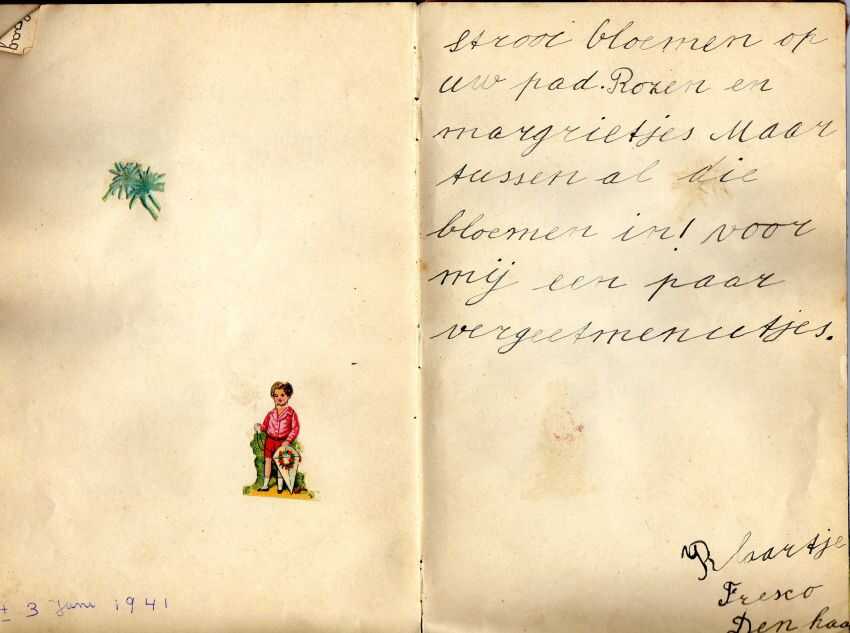 ± 3 Juni 1941
strooi bloemen op
uw pad. Rozen en
margrietjes Maar
tussen al die
bloemen in! voor
mij een paar
vergeetmenietjes.
Fresco
Den haa